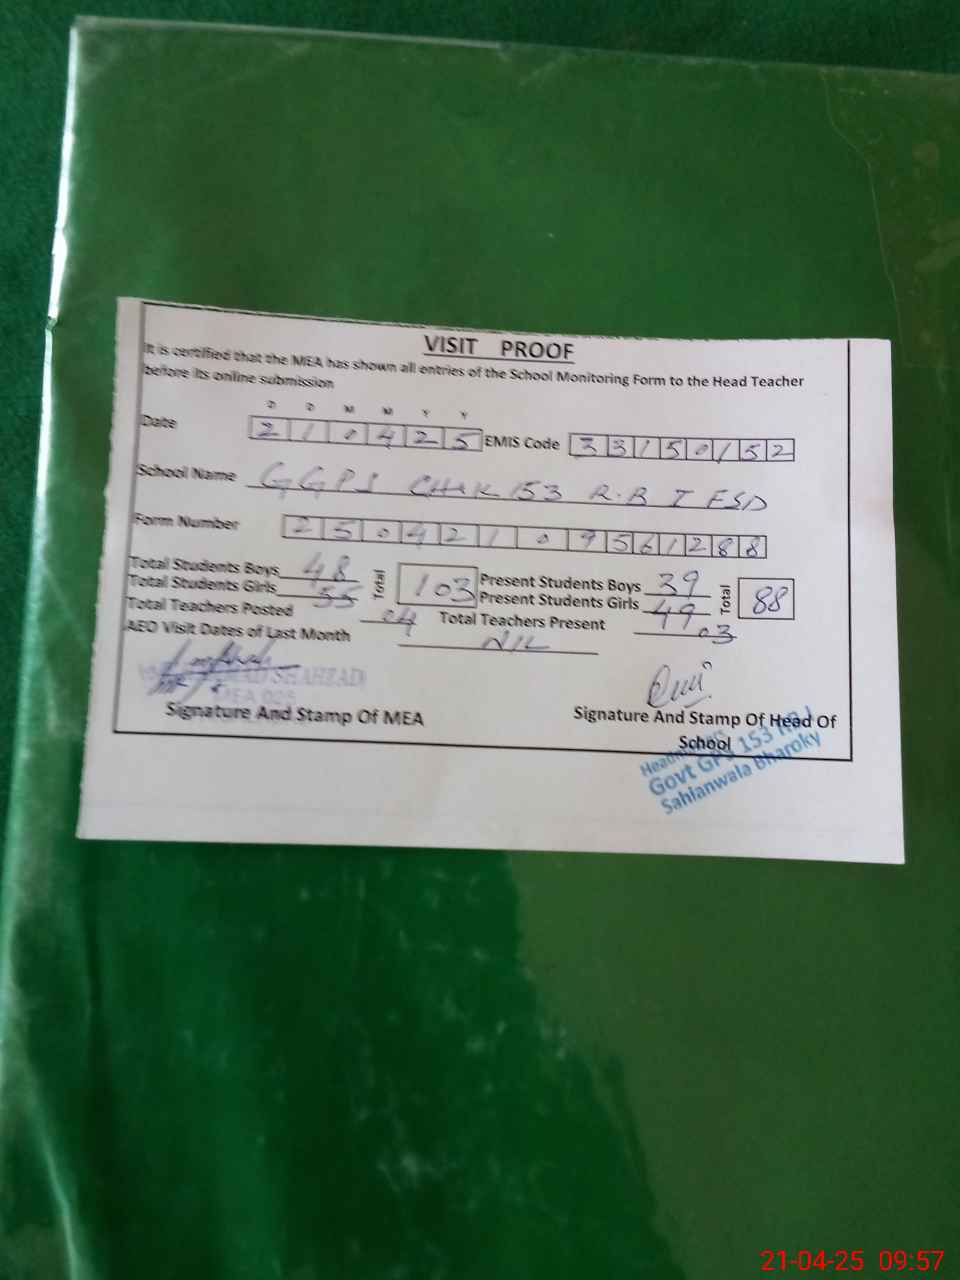 VISIT PROOF
It is certified that the MEA has shown all entries of the School Monitoring Form to the Head Teacher
before its online submission
D D M M Y Y
Date 2 1 0 4 2 5 EMIS Code 3 3 1 5 0 1 5 2
School Name GGPS CHAK 153 R.B I FSD
Form Number 2 5 0 4 2 1 0 9 5 6 1 2 8 8
Total Students Boys 48 Total 103 Present Students Boys 39 Total 88
Total Students Girls 55 Present Students Girls 49
Total Teachers Posted 04 Total Teachers Present 03
AEO Visit Dates of Last Month NIL
SHAHZAD
MEA 025
Signature And Stamp Of MEA
Signature And Stamp Of Head Of
School
Govt GPS 153
Sahianwala Bharoky
21-04-25 09:57